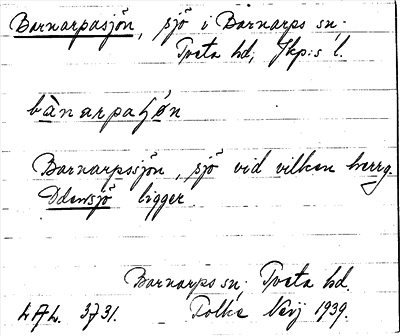 Barnarpasjön, sjö i Barnarps sn.
Tveta hd, Jkp:s l.
bànarpaʃǿn
Barnarpssjön, sjö vid vilken herrg.
Odensjö ligger
Barnarps sn. Tveta hd.
LAL. 3731. Folke
1939.